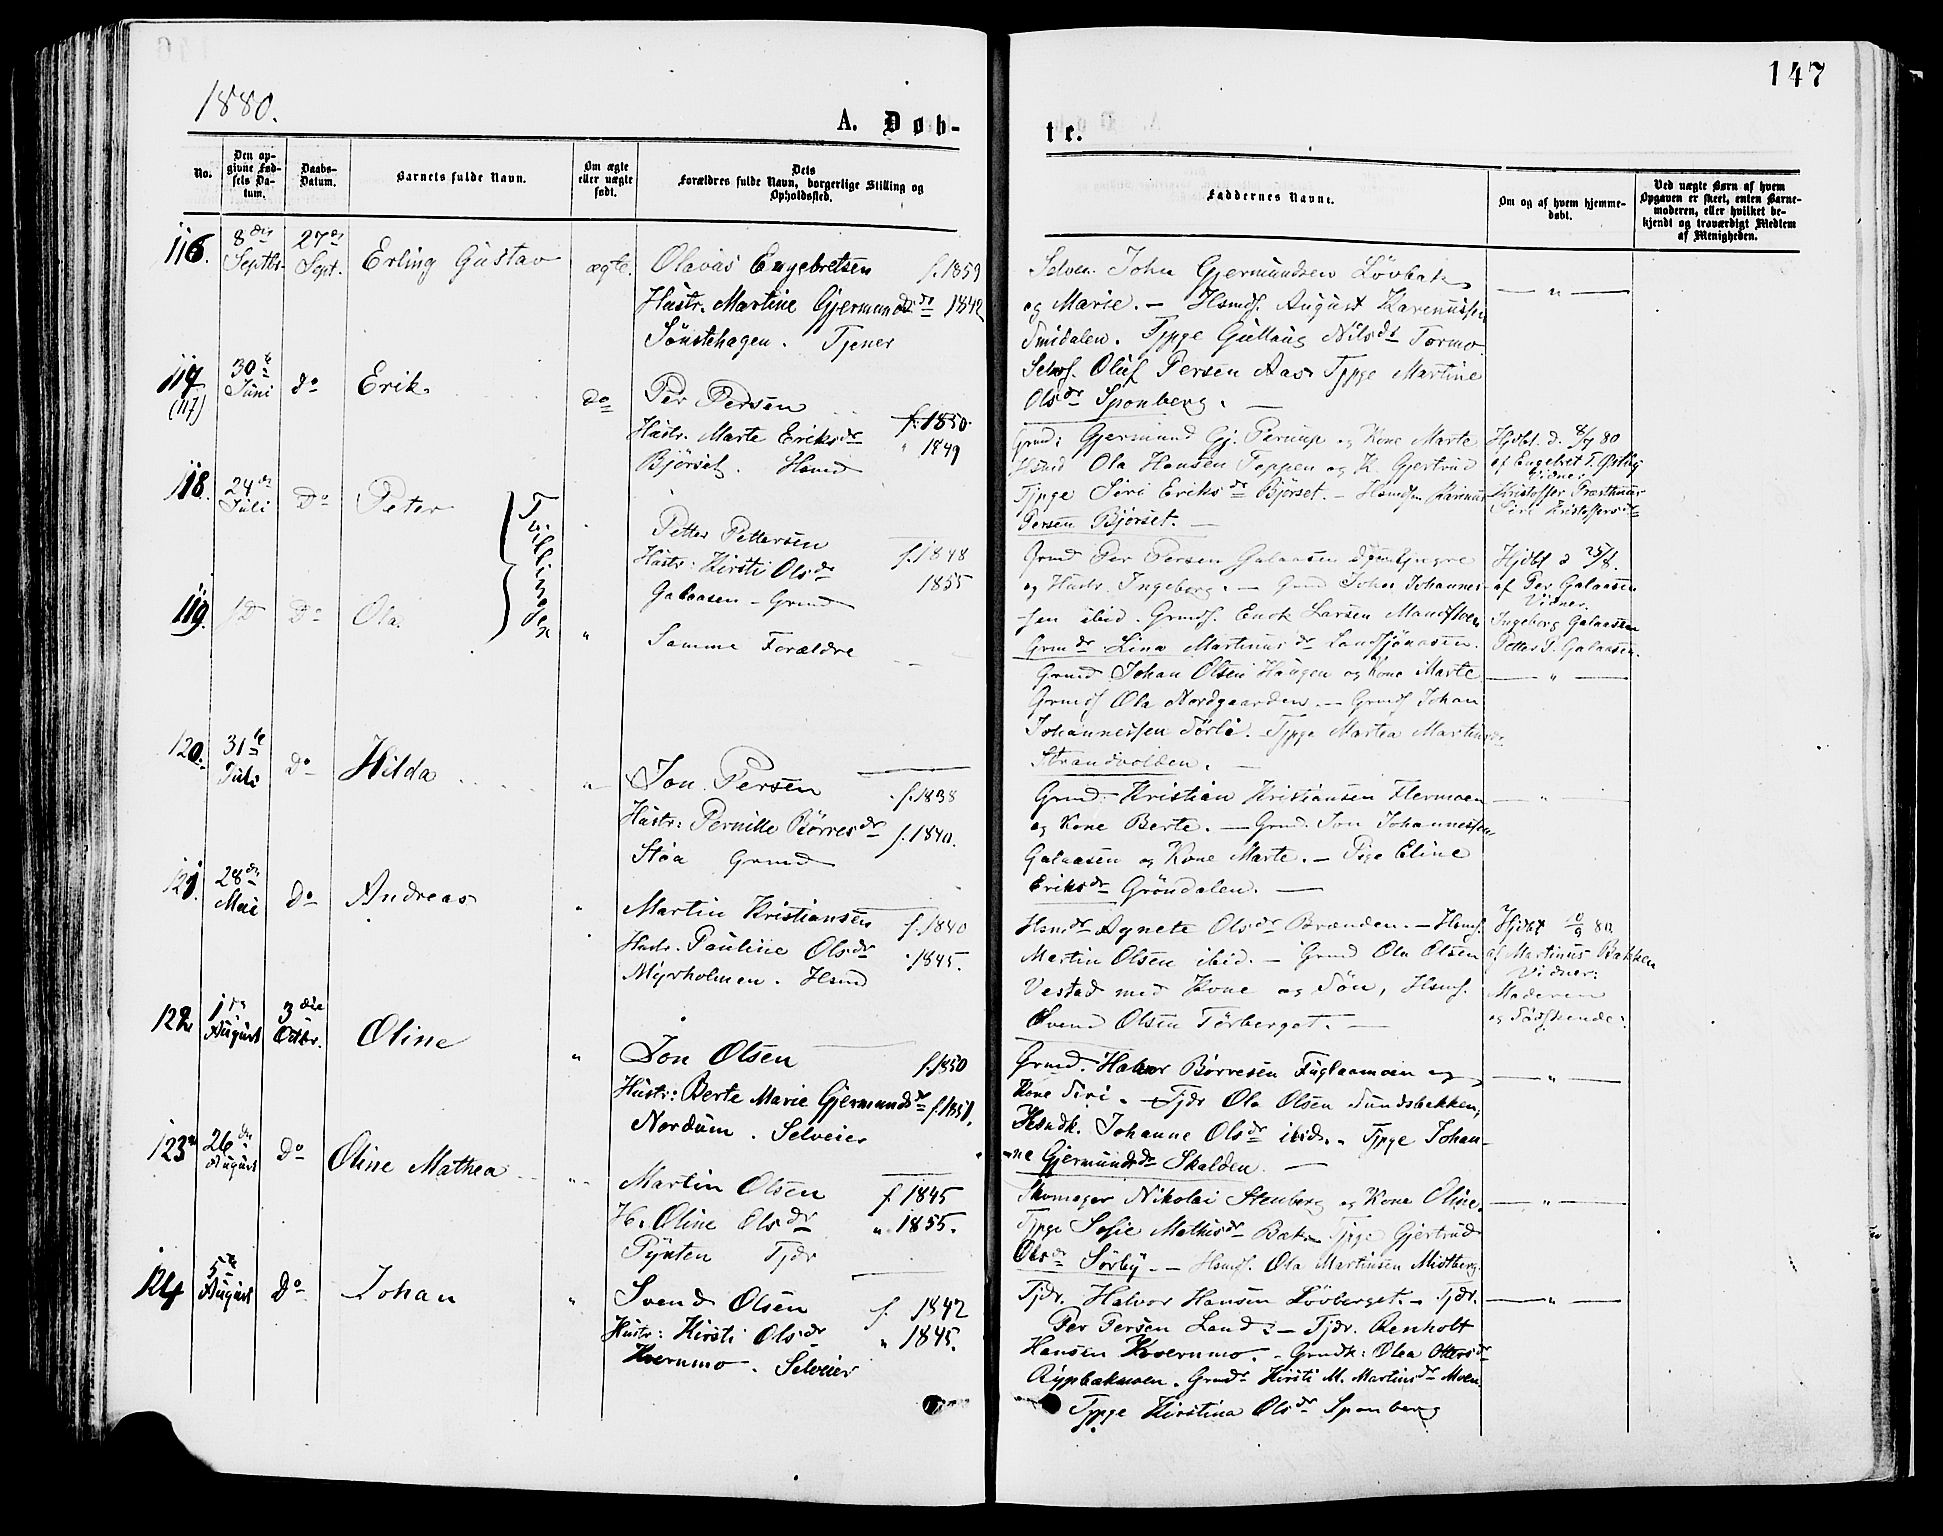 147
1880.
A. Døb-
te.
No.
Den op-
givne Fød-
sels Da-
tum.
Daabs-
Datum.
Barnets fulde Navn.
Om ægte
eller uægte
født.
Dets
Forældres fulde Navn, borgerlige Stilling og
Opholdssted.
Faddernes Navne.
Om og af hvem hjemme-
døbt.
Ved uægte Børn af hvem
Opgaven er skeet, enten Barne-
moderen, eller hvilket be-
kjendt og troværdigt Medlem
af Menigheden.
116.
8de
Septbr.
27de
Sept.
Erling Gustav
ægte.
Olavus Engebretsen f. 1859
Hustr. Martine Gjermundsdr 1842
Sønstehagen. Tjener
Selvei. John Gjermundsen Løvbak
og Marie. — Hsmdf. August Karenussen
Smidalen. Tjpge Gullaug Nilsdr Tormo
Selvf. Oluf Persen Aas Tjpge Martine
Olsdr Sponberg. —
— " —
117
(117)
30te
Juni
Do
Erik.
Do
Per Persen f. 1850
Hustr. Marte Eriksdr " 1849
Bjørset. Hsmd
Grmd: Gjermund Gj. Perup og Kone Marte
Hsmd Ola Hansen Toppen og K. Gjertrud
Tjpge Siri Eriksdr Bjørset. — Hsmdsn Karinus
Persen Bjørset. —
Hjdbt. d. 8/7 80
af Engebret T. Østby
Vidne:
Kristoffer Præsthus
Siri Kristoffersdr
118.
24de
Juli
Do
Peter
Tvillinger
Petter Pettersen f. 1848
Hustr: Kirsti Olsdr 1855
Galaasen — Grmd
Grmd Per Persen Galaasen d. yngre
og Hustr. Ingeborg. — Grmd Johan Johannes-
sen ibid. Grmdf. Enok Larsen Mandfloen
Grmdr Lina Martinusdr Landsjøaasen.
Hjdbt d 25/8.
af Per Galaasen
Vidner.
Ingeborg Galaasen
Petter P. Galaasen.
119.
D
Do
Ola.
"
Samme Forældre
Grmd Johan Olsen Haugen og Kone Marte
Grmdf Ola Nordgaarden. — Grmdf Johan
Johannessen Sørli. Tjpge Martea Martinsdr
Strandvolden. —
— " —
120.
31te
Juli
Do
Hilda
"
Jon Persen f. 1838
Hustr: Pernille Børresdr f. 1840.
Støa Grmd
Grmd. Kristian Kristiansen Flermoen
og Kone Berte. — Grmd. Jon Johannessen
Galaasen og Kone Marte. — Pige Eline
Eriksdr Grøndalen. —
— " —
121.
28de
Mai
Do
Andreas
"
Martin Kristiansen f. 1840
Hustr. Pauline Olsdr " 1845.
Myrholmen. Hsmd
Hsmdr Agnete Olsdr Brænden. — Hsmf.
Martin Olsen ibid. — Grmd Ola Olsen
Vestad med Kone og Søn, Hsmf.
Svend Olsen Tørberget. —
Hjdbt 10/9 80
af Martinus Bakken
Vidner:
Moderen
122
1ste
August
3die
Octbr.
Oline
"
Jon Olsen f. 1850
Hustr: Berte Marie Gjermundsdr f. 1851.
Nordum. Selveier
Grmd. Halvor Børresen Fuglaamoen og
Kone Siri. — Tjdr Ola Olsen Sundsbakken,
Hsmdk. Johanne Olsdr ibid. " Tjpge Johan-
-ne Gjermundsdr Skalden. —
— " —
123
26de
August
Do
Oline Mathea
"
Martin Olsen f 1845
H. Oline Olsdr " 1855.
Pynten Tjdr
Skomager Nikolai Stenberg og Kone Oline
Tjpge Sofie Mathisdr Bæk Tjpge Gjertrud
Olsdr Sørby. — Hsmdf. Ola Martinsen Midtberg
— " —
124
5te
August
Do
Johan
"
Svend Olsen f. 1842
Hustr: Kirsti Olsdr " 1845.
Kvernmo. Selveier
Tjdr. Halvor Hansen Løvberget. — Tjdr.
Per Persen Land: — Tjdr. Renholt
Hansen Kvernmo. — Grmdk: Olea Ottersdr
Rypbakmoen. Grmdr Kirsti M. Martinsdr Moen.
Tjpge Kirstina Olsdr Sponberg
— " —